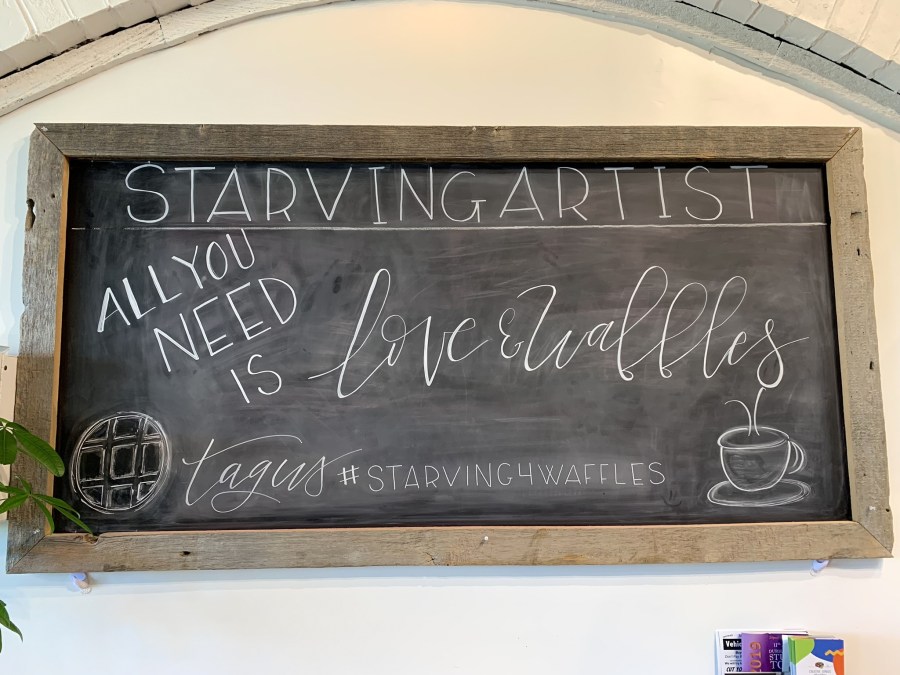 STARVING ARTIST
ALL YOU
NEED
IS
love & waffles
tag us #STARVING4WAFFLES
Vehicle
2019